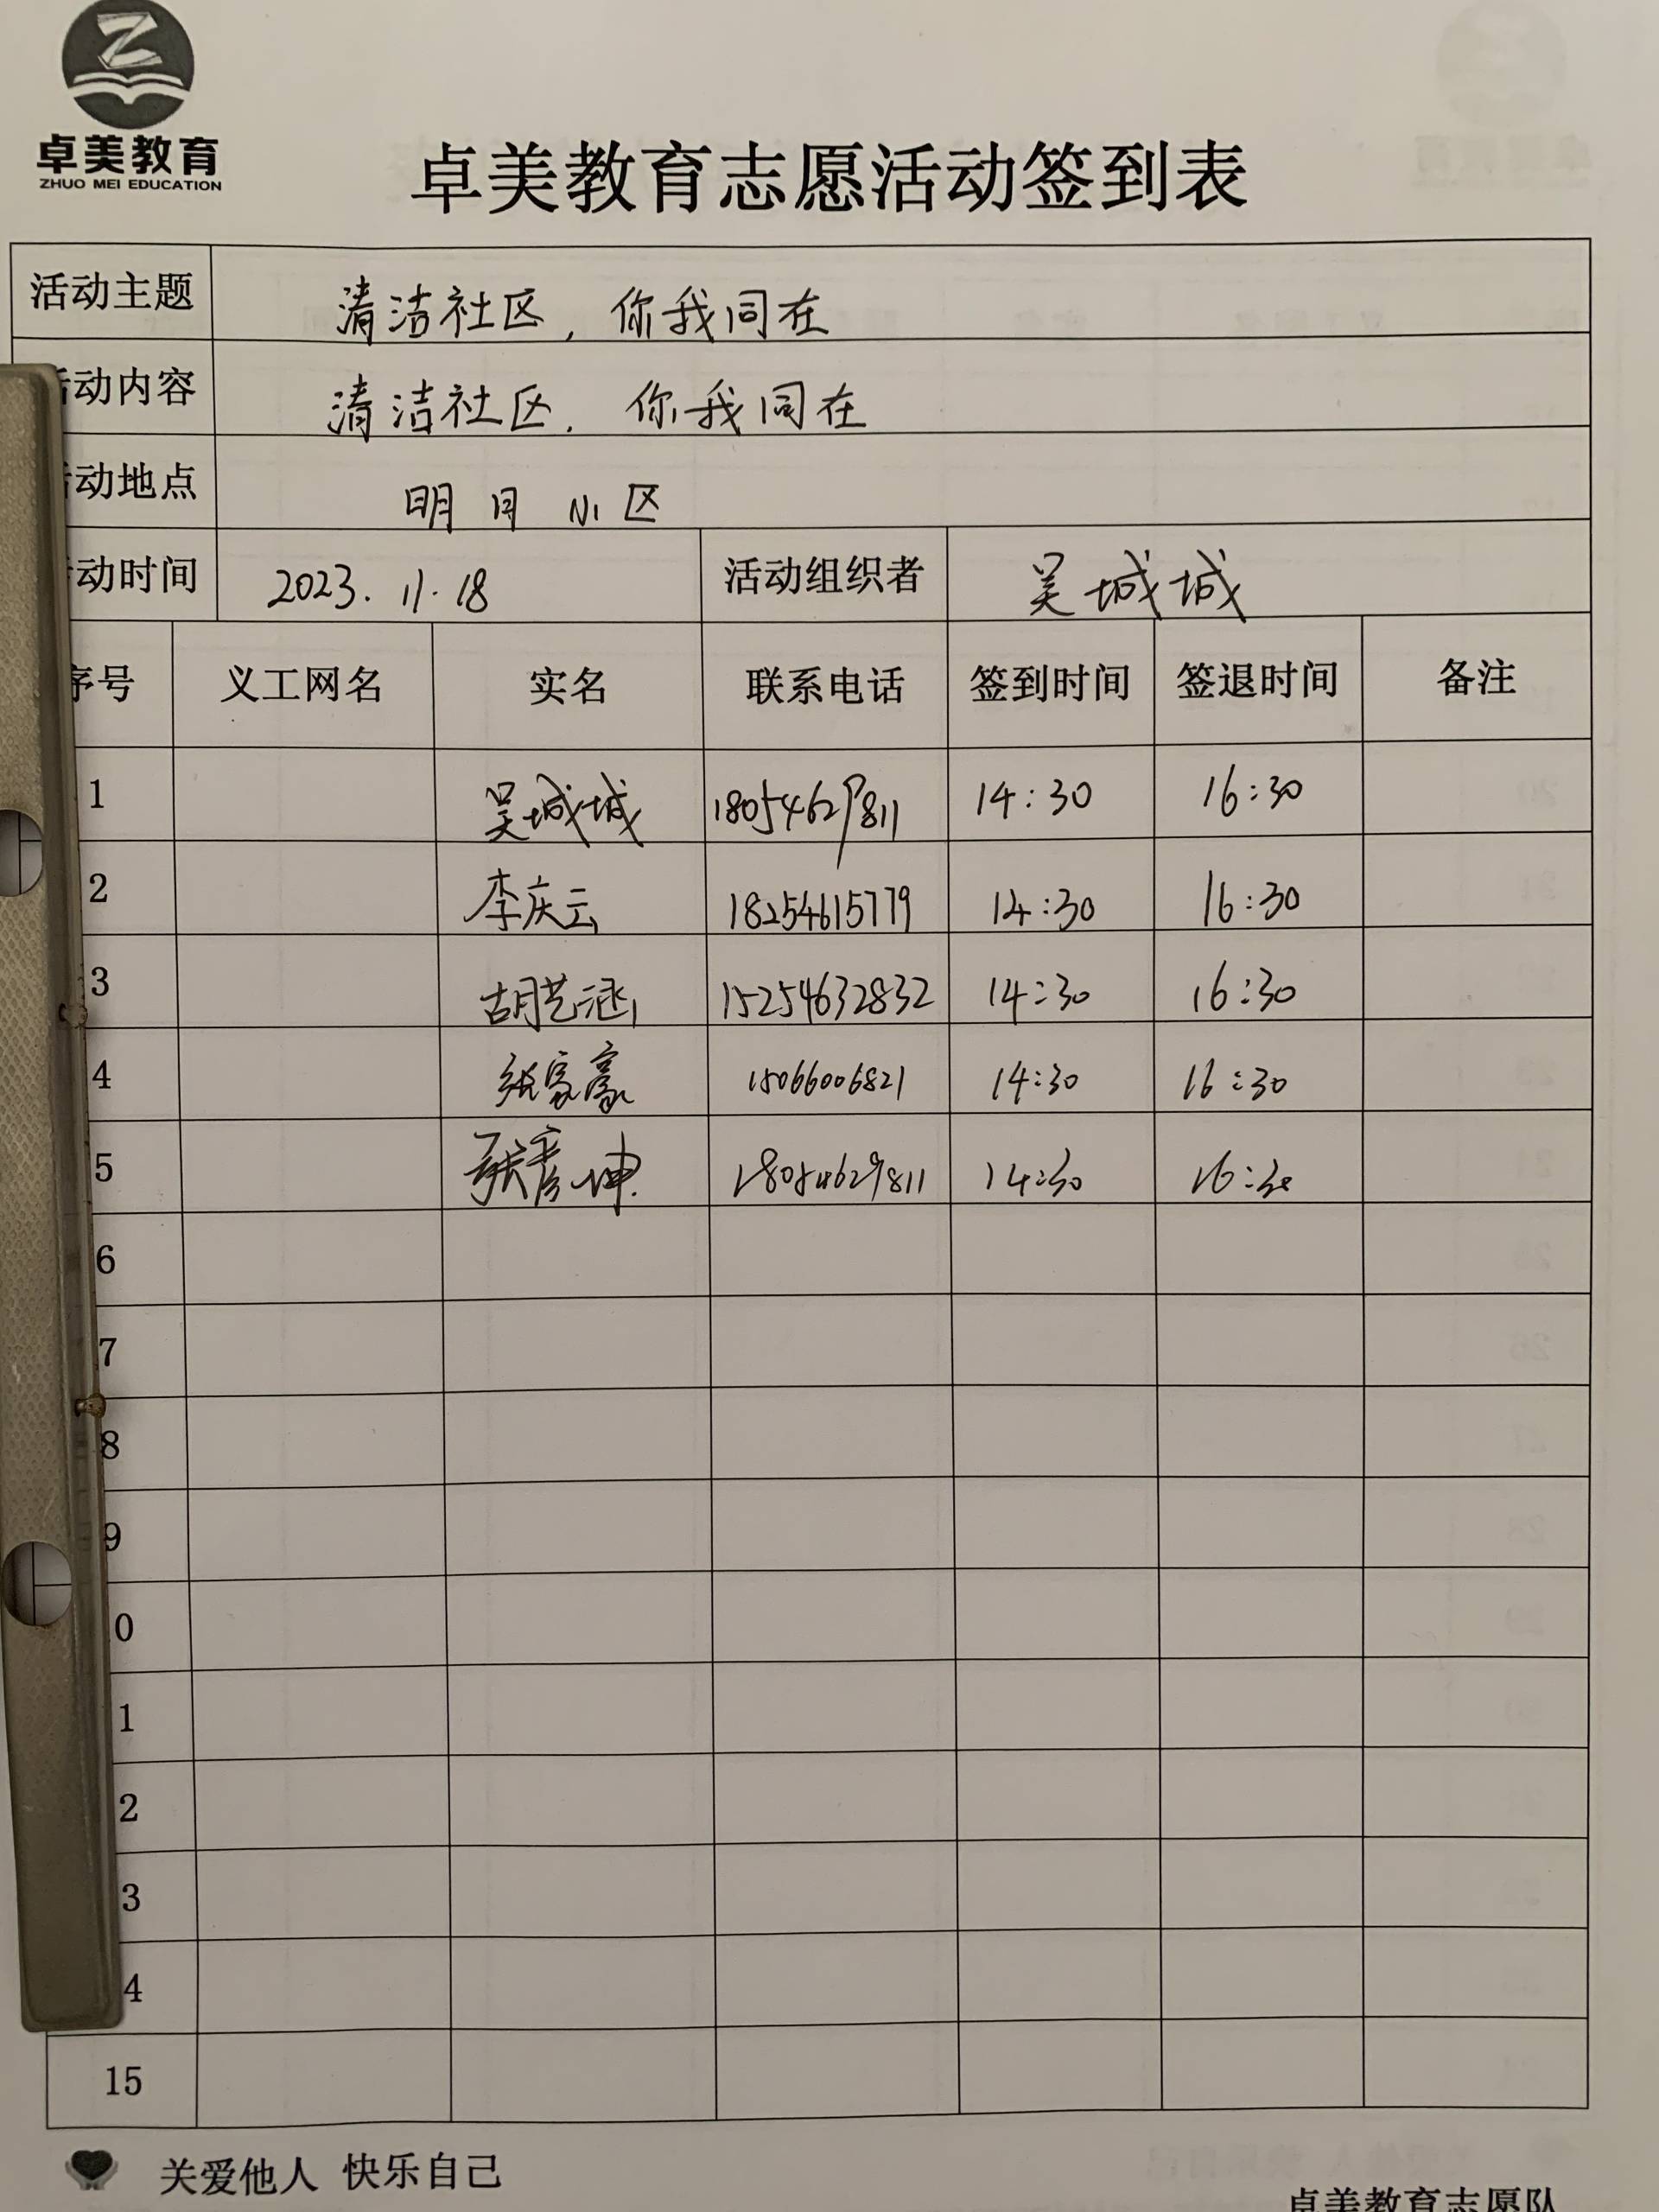 卓美教育
ZHUO MEI EDUCATION
卓美教育志愿活动签到表
活动主题 清洁社区，你我同在
活动内容 清洁社区，你我同在
活动地点 明月小区
活动时间 2023.11.18 活动组织者 吴城城
序号 义工网名 实名 联系电话 签到时间 签退时间 备注
1 吴城城 18054629811 14:30 16:30
2 李庆云 18254615779 14:30 16:30
3 胡艺涵 15254632832 14:30 16:30
4 张家豪 15066006821 14:30 16:30
5 张彦坤 18054629811 14:30 16:30
6
7
8
9
0
1
2
3
4
15
关爱他人 快乐自己
卓美教育志愿队